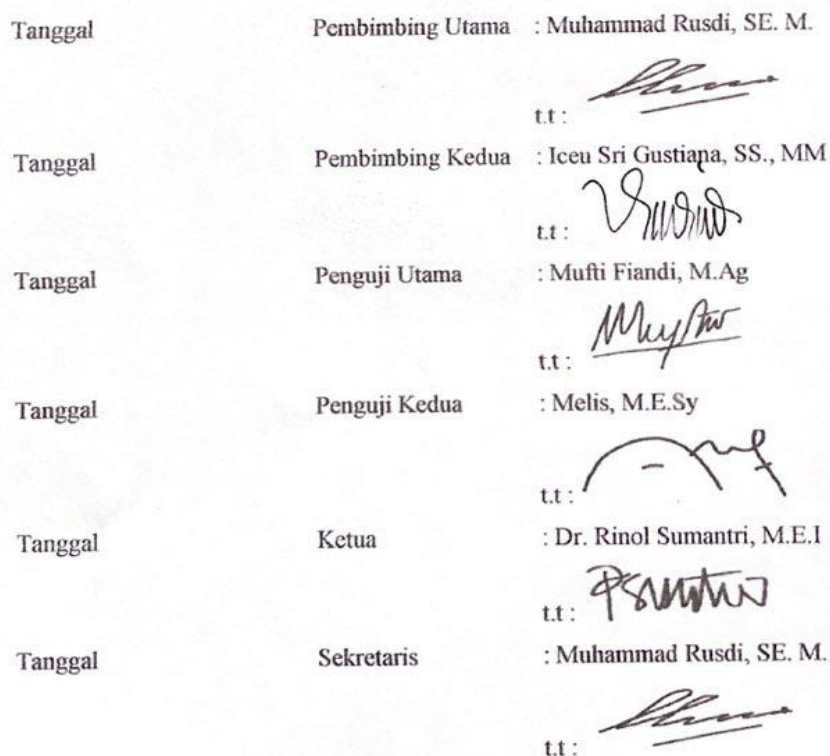 Tanggal Pembimbing Utama : Muhammad Rusdi, SE. M.
t.t :
Tanggal Pembimbing Kedua : Iceu Sri Gustiana, SS., MM
t.t :
Tanggal Penguji Utama : Mufti Fiandi, M.Ag
t.t :
Tanggal Penguji Kedua : Melis, M.E.Sy
t.t :
Tanggal Ketua : Dr. Rinol Sumantri, M.E.I
t.t :
Tanggal Sekretaris : Muhammad Rusdi, SE. M.
t.t :